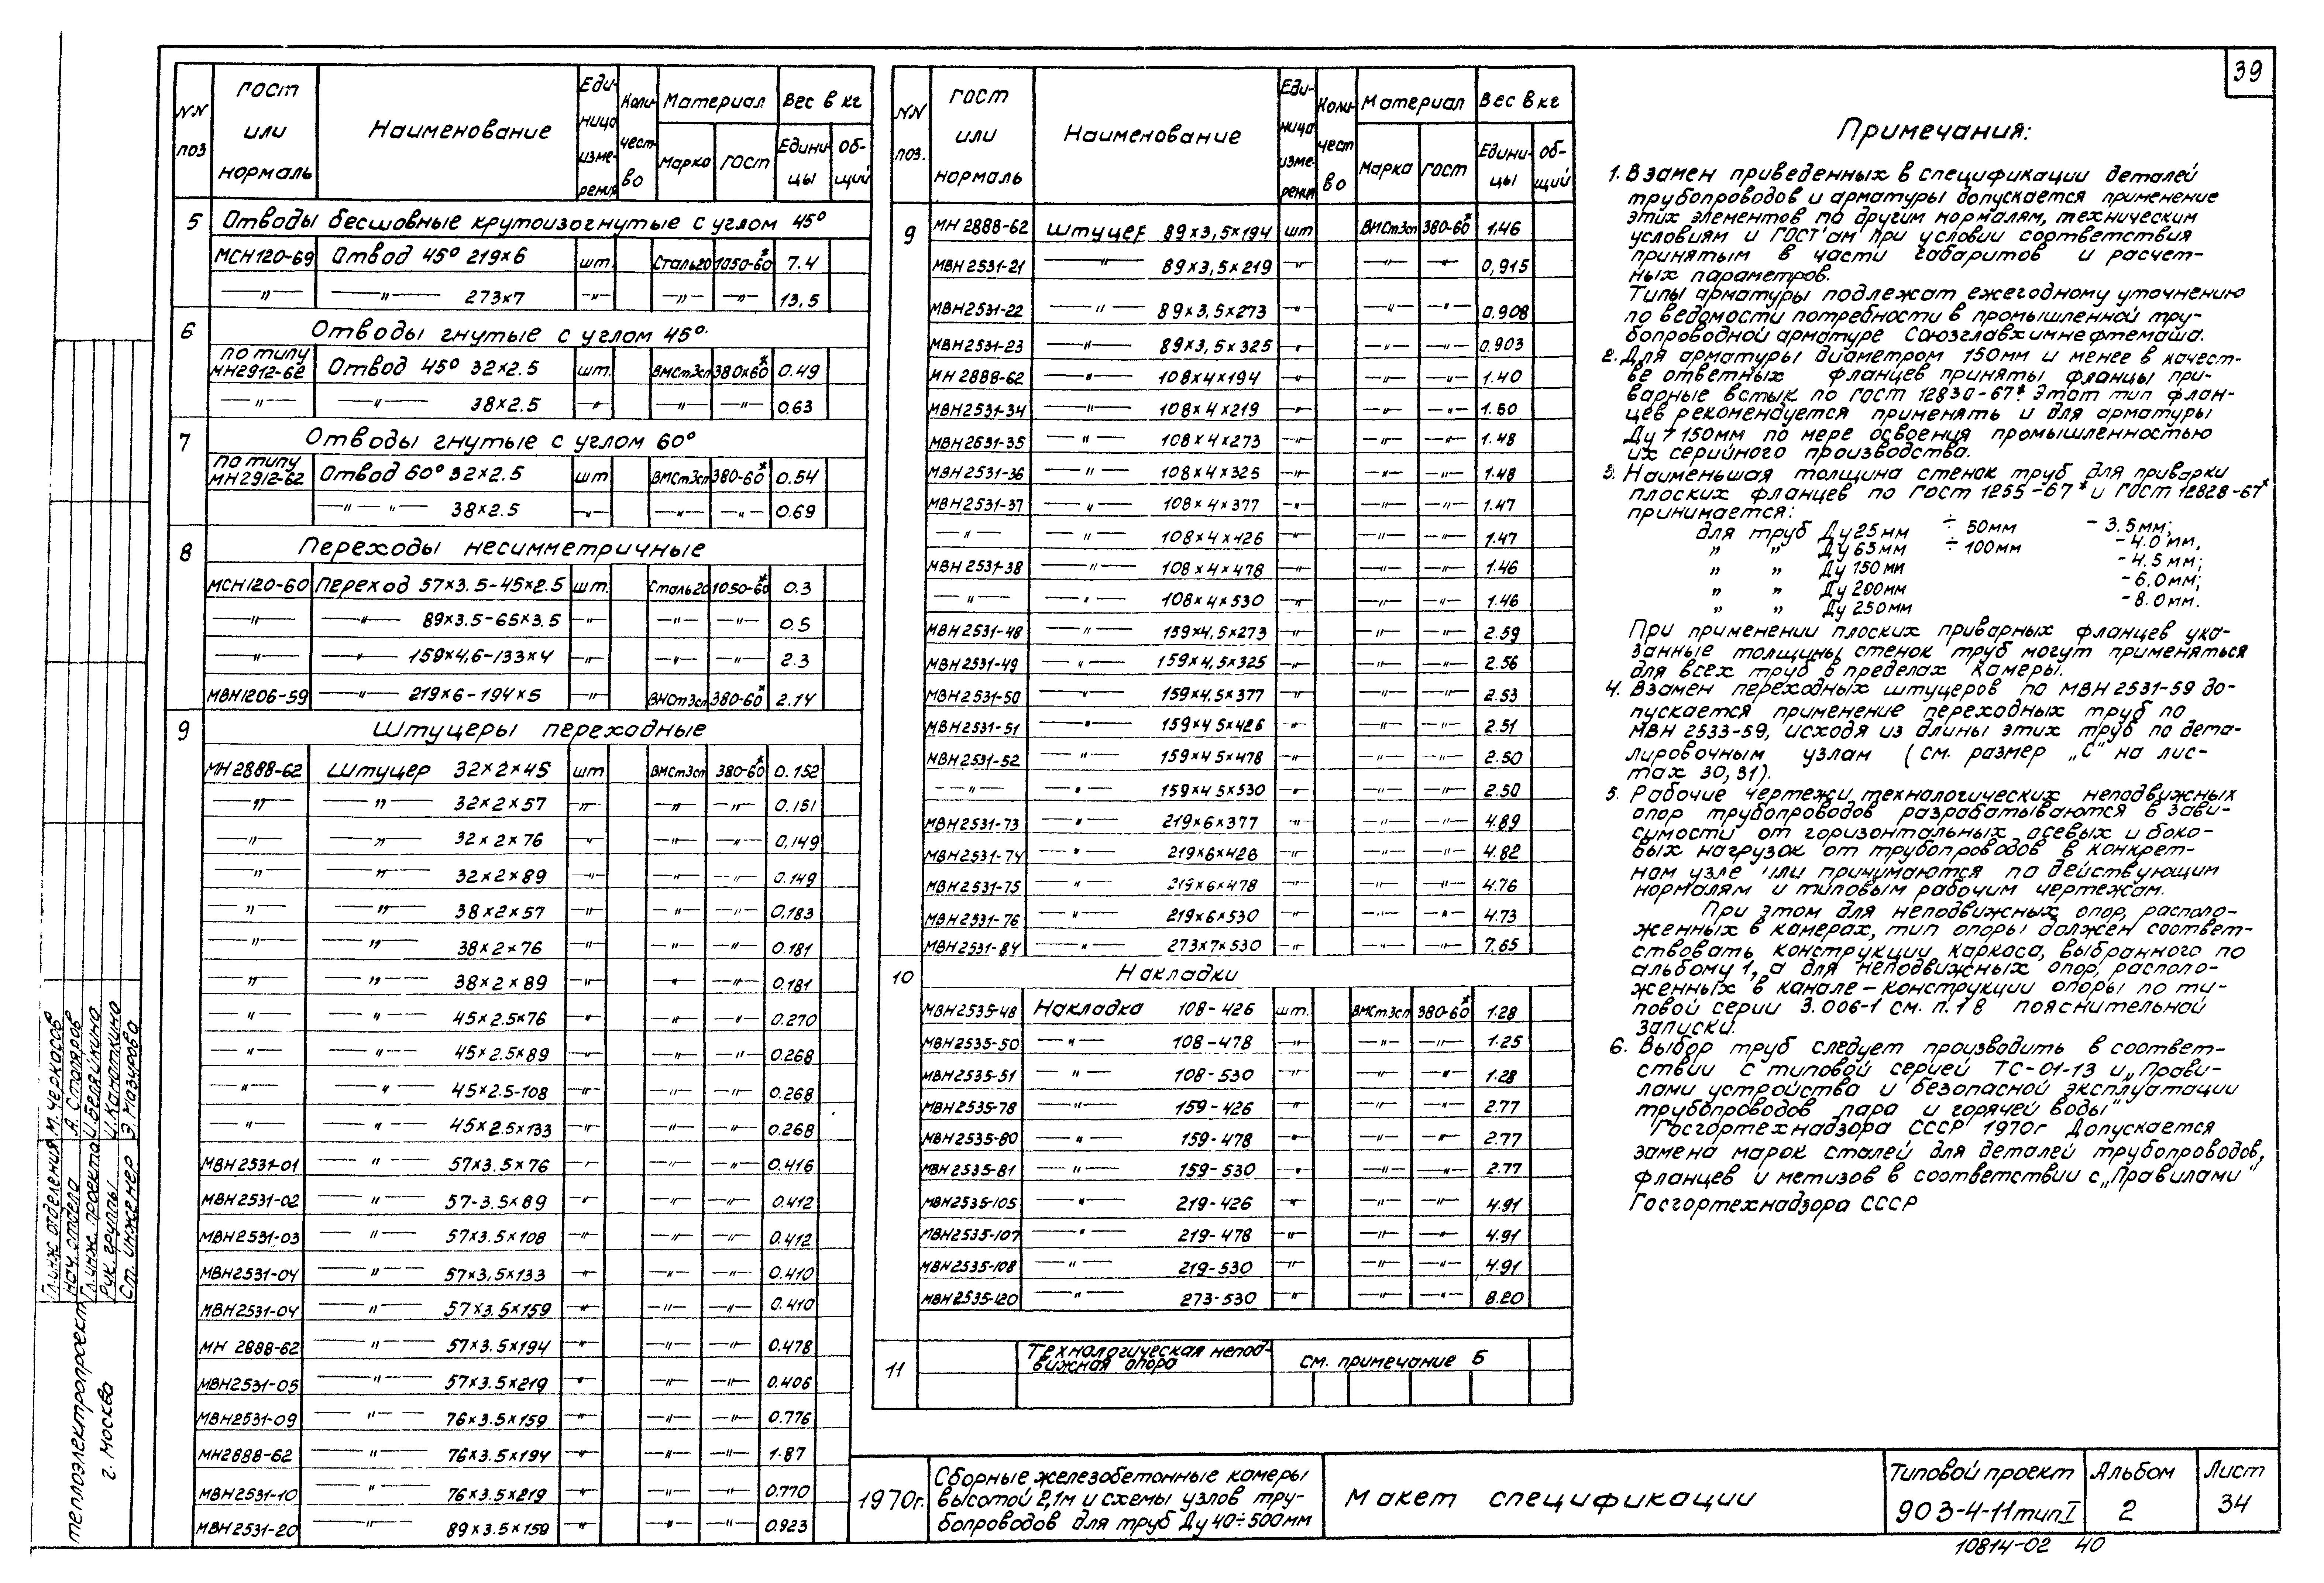 39
NN поз | ГОСТ или нормаль | Наименование | Единица измерения | Количество | Материал: Марка, ГОСТ | Вес в кг: Единицы, Общий
5 Отводы бесшовные крутоизогнутые с углом 45°
МСН120-69 Отвод 45° 219×6 шт. Сталь20 1050-60* 7.4
—"— —"— 273×7 —"— —"— —"— 13,5
6 Отводы гнутые с углом 45°
по типу МН2912-62 Отвод 45° 32×2.5 шт. ВМСт3сп 380×60* 0.49
—"— —"— 38×2.5 —"— —"— —"— 0.63
7 Отводы гнутые с углом 60°
по типу МН2912-62 Отвод 60° 32×2.5 шт ВМСт3сп 380-60* 0.54
—"— "— 38×2.5 —"— —"— —"— 0.69
8 Переходы несимметричные
МСН120-60 Переход 57×3.5-45×2.5 шт. Сталь20 1050-60* 0.3
—"— —"— 89×3.5-65×3.5 —"— —"— —"— 0.5
—"— —"— 159×4,6-133×4 —"— —"— —"— 2.3
МВН1206-59 —"— 219×6-194×5 —"— ВМСт3сп 380-60* 2.14
9 Штуцеры переходные
МН2888-62 Штуцер 32×2×45 шт ВМСт3сп 380-60* 0.152
—"— —"— 32×2×57 —"— —"— —"— 0.151
—"— —"— 32×2×76 —"— —"— —"— 0,149
—"— —"— 32×2×89 —"— —"— —"— 0.149
—"— —"— 38×2×57 —"— —"— —"— 0.183
—"— —"— 38×2×76 —"— —"— —"— 0.181
—"— —"— 38×2×89 —"— —"— —"— 0.181
—"— —"— 45×2.5×76 —"— —"— —"— 0.270
—"— —"— 45×2.5×89 —"— —"— —"— 0.268
—"— —"— 45×2.5-108 —"— —"— —"— 0.268
—"— —"— 45×2.5×133 —"— —"— —"— 0.268
МВН2531-01 —"— 57×3.5×76 —"— —"— —"— 0.416
МВН2531-02 —"— 57-3.5×89 —"— —"— —"— 0.412
МВН2531-03 —"— 57×3.5×108 —"— —"— —"— 0.412
МВН2531-04 —"— 57×3,5×133 —"— —"— —"— 0.410
МВН2531-04 —"— 57×3.5×159 —"— —"— —"— 0.410
МН 2888-62 —"— 57×3.5×194 —"— —"— —"— 0.478
МВН2531-05 —"— 57×3.5×219 —"— —"— —"— 0.406
МВН2531-09 —"— 76×3.5×159 —"— —"— —"— 0.776
МН2888-62 —"— 76×3.5×194 —"— —"— —"— 1.87
МВН2531-10 —"— 76×3.5×219 —"— —"— —"— 0.770
МВН2531-20 —"— 89×3.5×159 —"— —"— —"— 0.923
NN поз. | ГОСТ или нормаль | Наименование | Единица измерения | Количество | Материал: Марка, ГОСТ | Вес в кг: Единицы, Общий
9 МН 2888-62 Штуцер 89×3,5×194 шт ВМСт3сп 380-60* 1.46
МВН2531-21 —"— 89×3,5×219 —"— —"— —"— 0,915
МВН2531-22 —"— 89×3,5×273 —"— —"— —"— 0.908
МВН2531-23 —"— 89×3,5×325 —"— —"— —"— 0.903
МН 2888-62 —"— 108×4×194 —"— —"— —"— 1.40
МВН2531-34 —"— 108×4×219 —"— —"— —"— 1.60
МВН2531-35 —"— 108×4×273 —"— —"— —"— 1.48
МВН2531-36 —"— 108×4×325 —"— —"— —"— 1.48
МВН2531-37 —"— 108×4×377 —"— —"— —"— 1.47
—"— —"— 108×4×426 —"— —"— —"— 1.47
МВН2531-38 —"— 108×4×478 —"— —"— —"— 1.46
—"— —"— 108×4×530 —"— —"— —"— 1.46
МВН2531-48 —"— 159×4,5×273 —"— —"— —"— 2.59
МВН2531-49 —"— 159×4,5×325 —"— —"— —"— 2.56
МВН2531-50 —"— 159×4.5×377 —"— —"— —"— 2.53
МВН2531-51 —"— 159×4 5×426 —"— —"— —"— 2.51
МВН2531-52 —"— 159×4 5×478 —"— —"— —"— 2.50
—"— —"— 159×4 5×530 —"— —"— —"— 2.50
МВН2531-73 —"— 219×6×377 —"— —"— —"— 4.89
МВН2531-74 —"— 219×6×426 —"— —"— —"— 4.82
МВН2531-75 —"— 219×6×478 —"— —"— —"— 4.76
МВН2531-76 —"— 219×6×530 —"— —"— —"— 4.73
МВН2531-84 —"— 273×7×530 —"— —"— —"— 7.65
10 Накладки
МВН2535-48 Накладка 108-426 шт. ВМСт3сп 380-60* 1.28
МВН2535-50 —"— 108-478 —"— —"— —"— 1.25
МВН2535-51 —"— 108-530 —"— —"— —"— 1.28
МВН2535-78 —"— 159-426 —"— —"— —"— 2.77
МВН2535-80 —"— 159-478 —"— —"— —"— 2.77
МВН2535-81 —"— 159-530 —"— —"— —"— 2.77
МВН2535-105 —"— 219-426 —"— —"— —"— 4.91
МВН2535-107 —"— 219-478 —"— —"— —"— 4.91
МВН2535-108 —"— 219-530 —"— —"— —"— 4.91
МВН2535-120 —"— 273-530 —"— —"— —"— 8.20
11 Технологическая неподвижная опора см. примечание 5
Примечания:
1. Взамен приведенных в спецификации деталей
трубопроводов и арматуры допускается применение
этих элементов по другим нормалям, техническим
условиям и ГОСТ'ам при условии соответствия
принятым в части габаритов и расчет-
ных параметров.
Типы арматуры подлежат ежегодному уточнению
по ведомости потребности в промышленной тру-
бопроводной арматуре Союзглавхимнефтемаша.
2. Для арматуры диаметром 150мм и менее в качест-
ве ответных фланцев приняты фланцы при-
варные встык по ГОСТ 12830-67* Этот тип флан-
цев рекомендуется применять и для арматуры
Ду > 150мм по мере освоения промышленностью
их серийного производства.
3. Наименьшая толщина стенок труб для приварки
плоских фланцев по ГОСТ 1255-67* и ГОСТ 12828-67*
принимается:
для труб Ду25мм ÷ 50мм - 3.5мм;
" " Ду65мм ÷ 100мм - 4.0мм,
" " Ду150мм - 4.5мм;
" " Ду200мм - 6.0мм;
" " Ду250мм - 8.0мм.
При применении плоских приварных фланцев ука-
занные толщины стенок труб могут применяться
для всех труб в пределах камеры.
4. Взамен переходных штуцеров по МВН 2531-59 до-
пускается применение переходных труб по
МВН 2533-59, исходя из длины этих труб по дета-
лировочным узлам (см. размер „С" на лис-
тах 30, 31).
5. Рабочие чертежи технологических неподвижных
опор трубопроводов разрабатываются в зави-
симости от горизонтальных осевых и боко-
вых нагрузок от трубопроводов в конкрет-
ном узле или принимаются по действующим
нормалям и типовым рабочим чертежам.
При этом для неподвижных опор, располо-
женных в камерах, тип опоры должен соответ-
ствовать конструкции каркаса, выбранного по
альбому 1, а для неподвижных опор, располо-
женных в канале-конструкции опоры по ти-
повой серии 3.006-1 см. п. 18 пояснительной
записки.
6. Выбор труб следует производить в соответ-
ствии с типовой серией ТС-01-13 и „Прави-
лами устройства и безопасной эксплуатации
трубопроводов пара и горячей воды"
Госгортехнадзора СССР 1970г Допускается
замена марок сталей для деталей трубопроводов,
фланцев и метизов в соответствии с „Правилами"
Госгортехнадзора СССР
1970г.
Сборные железобетонные камеры
высотой 2,1м и схемы узлов тру-
бопроводов для труб Ду 40÷500мм
Макет спецификации
Типовой проект
903-4-11 тип I
Альбом
2
Лист
34
10814-02 40
Теплоэлектропроект
г. Москва
Гл. инж. отделения М. Черкасов
Нач. отдела А. Столяров
Гл. инж. проекта
Рук. группы
Ст. инженер Э. Мазурова